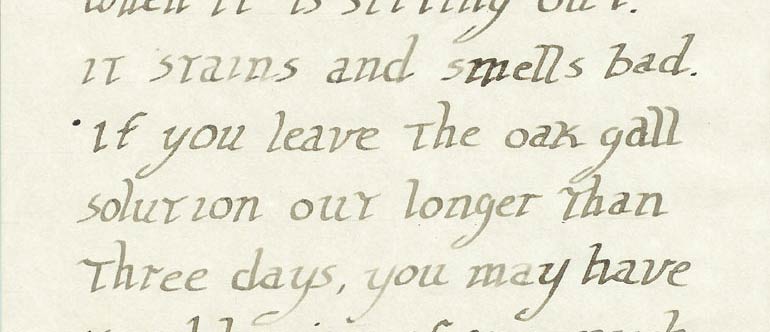 when it is sitting out.
it stains and smells bad.
· if you leave the oak gall
solution out longer than
Three days, you may have